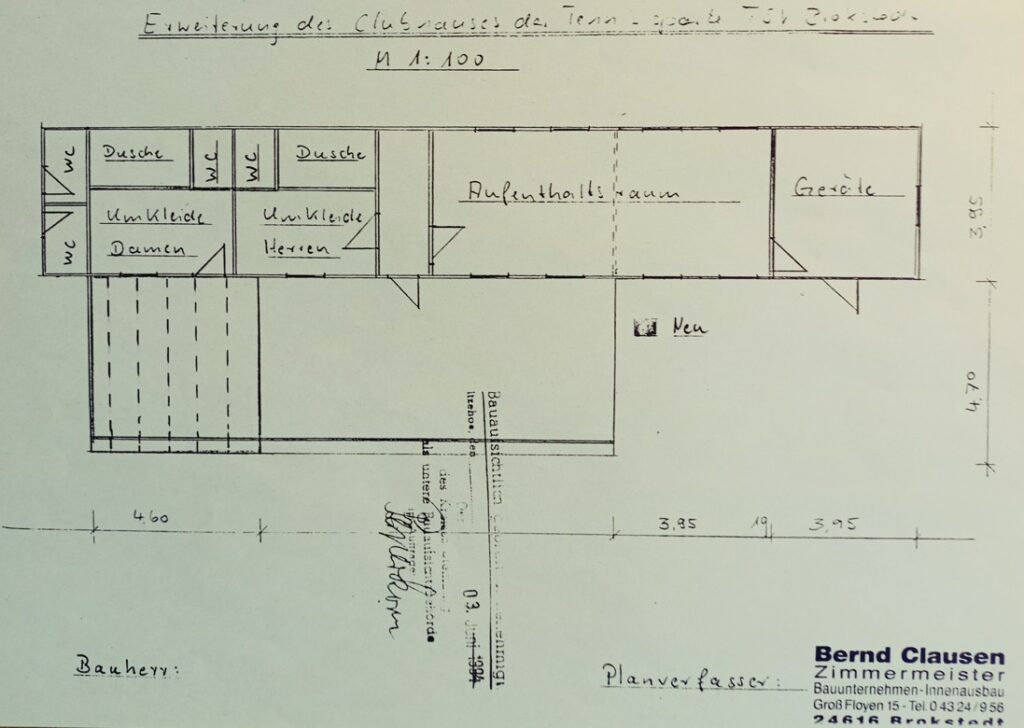 Erweiterung des Clubhauses der Tennissparte TSV Brokstedt
M 1:100
WC
Dusche
WC
WC
Dusche
Aufenthaltsraum
Geräte
WC
Umkleide
Damen
Umkleide
Herren
3,95
Neu
4,70
4,60
3,95
19
3,95
Bauaufsichtlich
Itzehoe, den
03. Juni 1994
des
als untere Bauaufsichtsbehörde
Bauherr:
Planverfasser:
Bernd Clausen
Zimmermeister
Bauunternehmen-Innenausbau
Groß Floyen 15 - Tel. 0 43 24 / 9 56
24616 Brokstedt